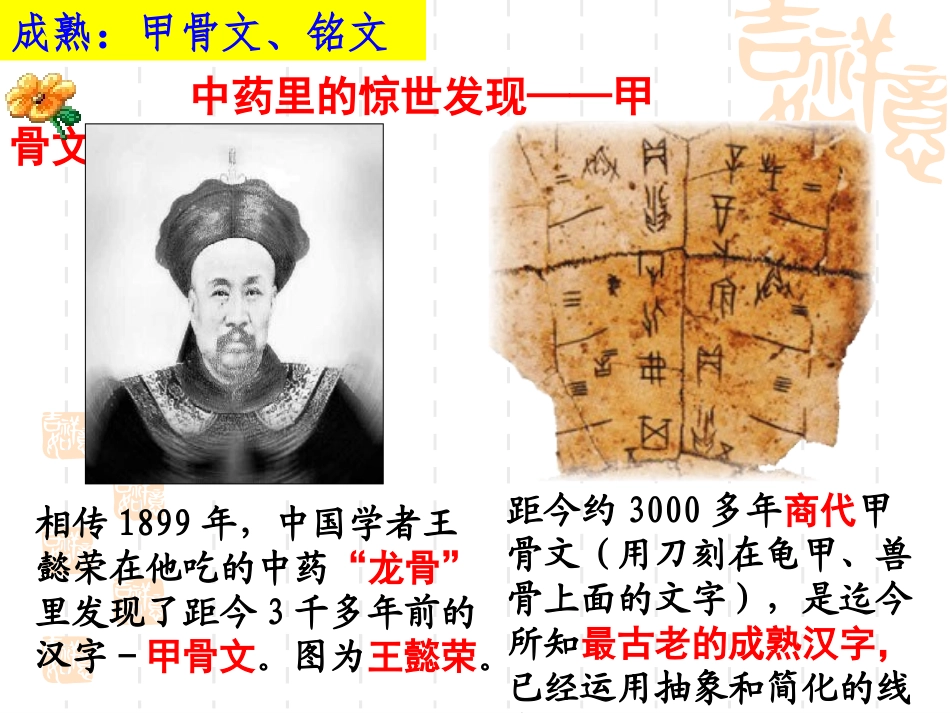 成熟：甲骨文、铭文
中药里的惊世发现——甲
骨文
相传 1899 年，中国学者王
懿荣在他吃的中药“龙骨”
里发现了距今 3 千多年前的
汉字－甲骨文。图为王懿荣。
距今约 3000 多年商代甲
骨文（用刀刻在龟甲、兽
骨上面的文字），是迄今
所知最古老的成熟汉字，
已经运用抽象和简化的线
吉祥如意